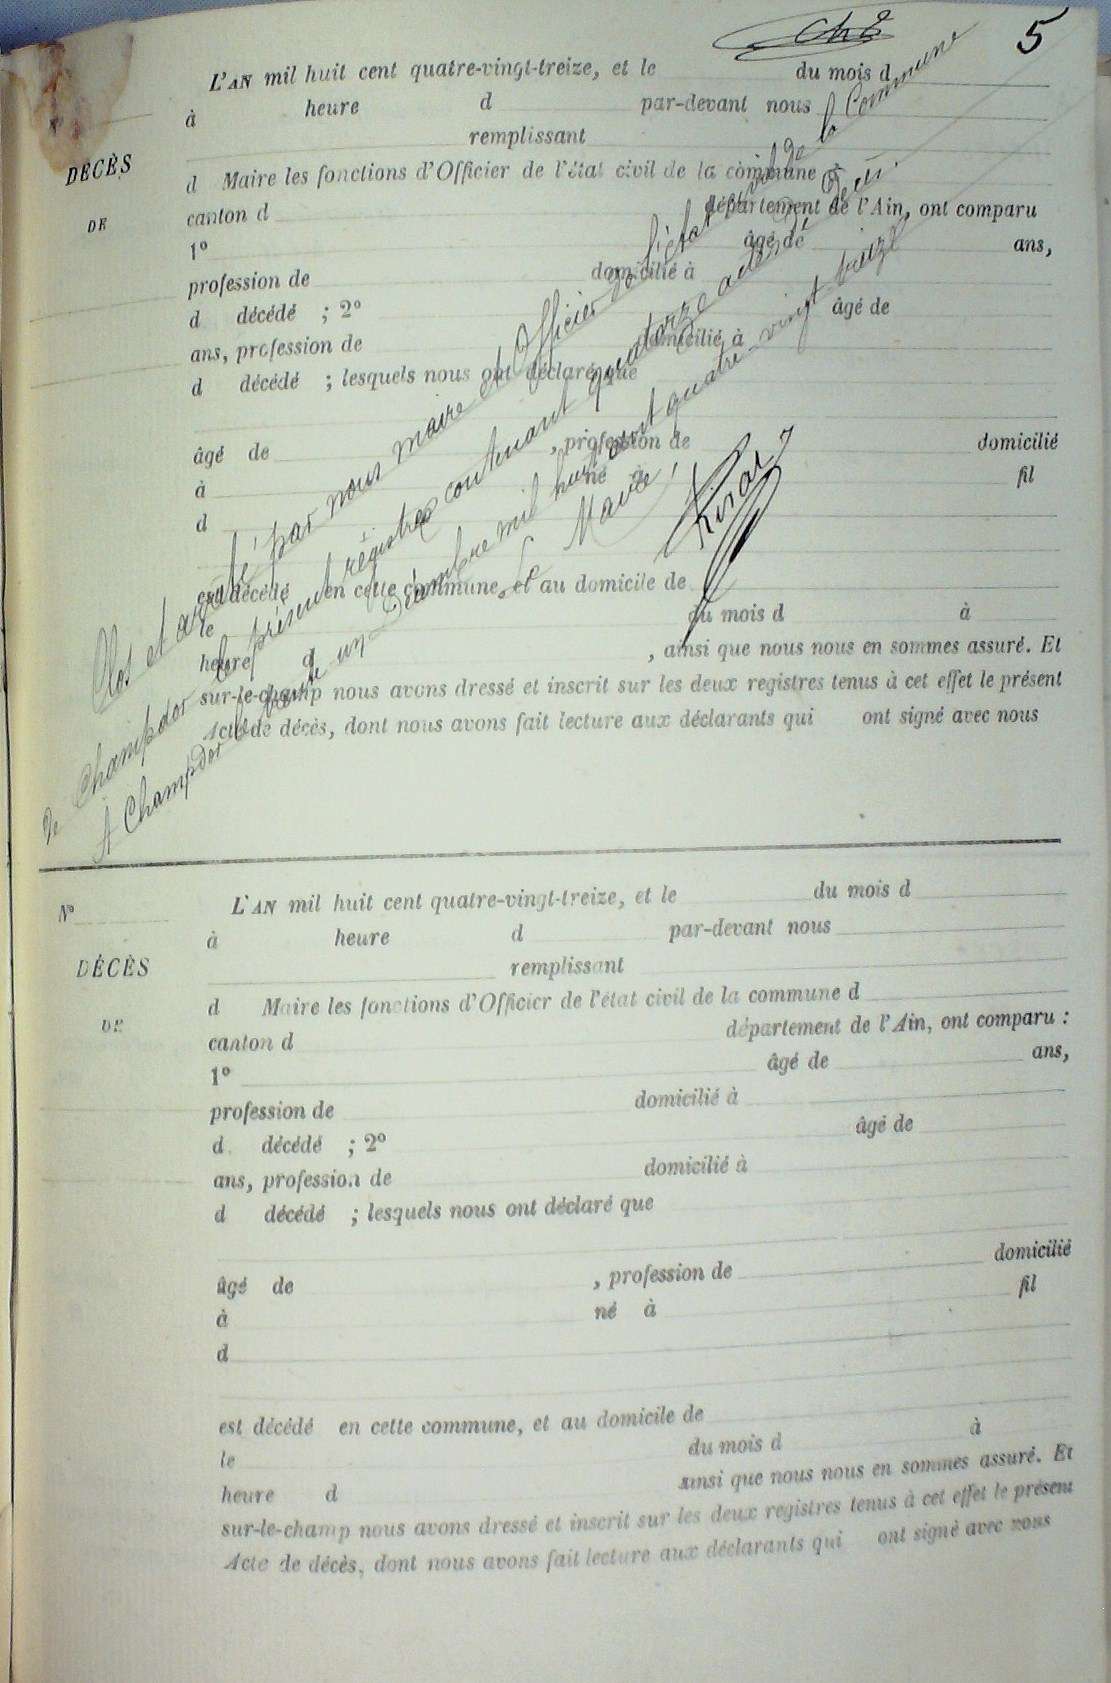 Ch 5
L'AN mil huit cent quatre-vingt-treize, et le du mois d
à heure d par-devant nous
remplissant
DÉCÈS
d Maire les fonctions d'Officier de l'état civil de la commune d
DE
canton d département de l'Ain, ont comparu
1º âgé de ans,
profession de domicilié à
d décédé ; 2º âgé de
ans, profession de domicilié à
d décédé ; lesquels nous ont déclaré que
âgé de , profession de domicilié
à né à fil
d
est décédé en cette commune, et au domicile de
le du mois d à
heure d , ainsi que nous nous en sommes assuré. Et
sur-le-champ nous avons dressé et inscrit sur les deux registres tenus à cet effet le présent
Acte de décès, dont nous avons fait lecture aux déclarants qui ont signé avec nous
Clos et arrêté par nous maire et Officier de l'état civil de la Commune
de Champdor le présent régistre contenant quatorze actes de décès.
A Champdor le trente un Décembre mil huit cent quatre-vingt treize
Le Maire,
Nº
L'AN mil huit cent quatre-vingt-treize, et le du mois d
à heure d par-devant nous
DÉCÈS
remplissant
d Maire les fonctions d'Officier de l'état civil de la commune d
DE
canton d département de l'Ain, ont comparu :
1º âgé de ans,
profession de domicilié à
d décédé ; 2º âgé de
ans, profession de domicilié à
d décédé ; lesquels nous ont déclaré que
âgé de , profession de domicilié
à né à fil
d
est décédé en cette commune, et au domicile de
le du mois d à
heure d ainsi que nous nous en sommes assuré. Et
sur-le-champ nous avons dressé et inscrit sur les deux registres tenus à cet effet le présent
Acte de décès, dont nous avons fait lecture aux déclarants qui ont signé avec nous